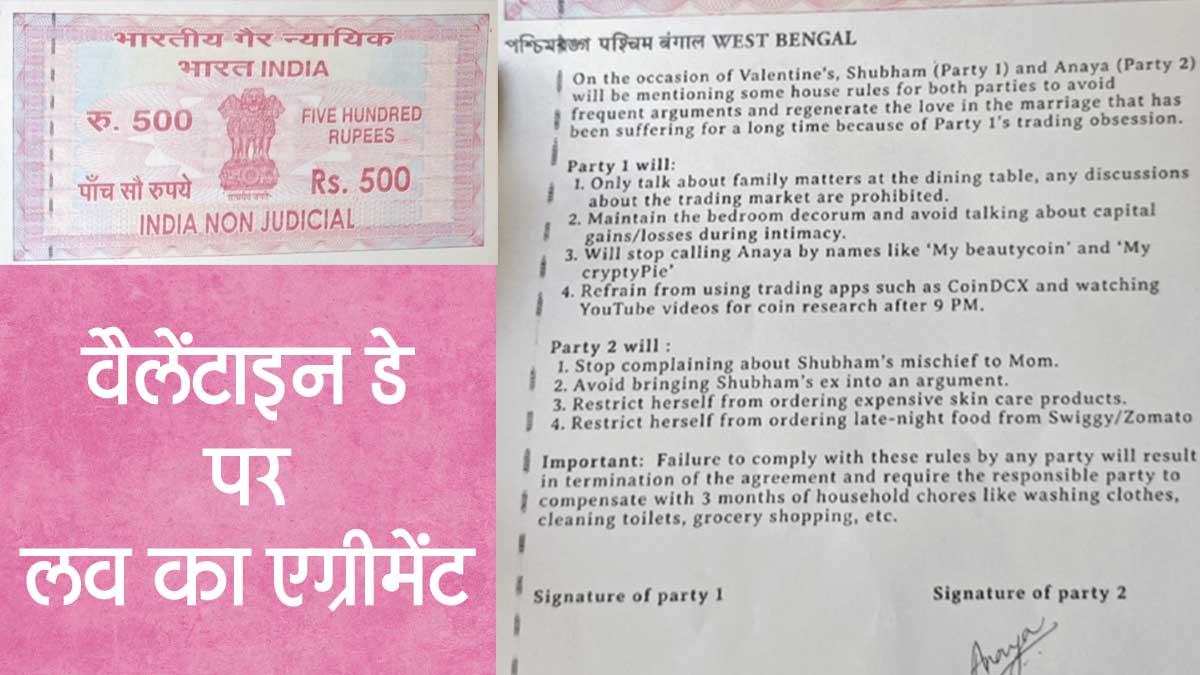 भारतीय गैर न्यायिक
भारत INDIA
रु. 500
FIVE HUNDRED
RUPEES
पाँच सौ रुपये
Rs. 500
सत्यमेव जयते
INDIA NON JUDICIAL
वैलेंटाइन डे
पर
लव का एग्रीमेंट
पश्चिम बंगाल WEST BENGAL
On the occasion of Valentine's, Shubham (Party 1) and Anaya (Party 2)
will be mentioning some house rules for both parties to avoid
frequent arguments and regenerate the love in the marriage that has
been suffering for a long time because of Party 1's trading obsession.
Party 1 will:
1. Only talk about family matters at the dining table, any discussions
about the trading market are prohibited.
2. Maintain the bedroom decorum and avoid talking about capital
gains/losses during intimacy.
3. Will stop calling Anaya by names like 'My beautycoin' and 'My
cryptyPie'
4. Refrain from using trading apps such as CoinDCX and watching
YouTube videos for coin research after 9 PM.
Party 2 will :
1. Stop complaining about Shubham's mischief to Mom.
2. Avoid bringing Shubham's ex into an argument.
3. Restrict herself from ordering expensive skin care products.
4. Restrict herself from ordering late-night food from Swiggy/Zomato
Important: Failure to comply with these rules by any party will result
in termination of the agreement and require the responsible party to
compensate with 3 months of household chores like washing clothes,
cleaning toilets, grocery shopping, etc.
Signature of party 1
Signature of party 2
Anaya